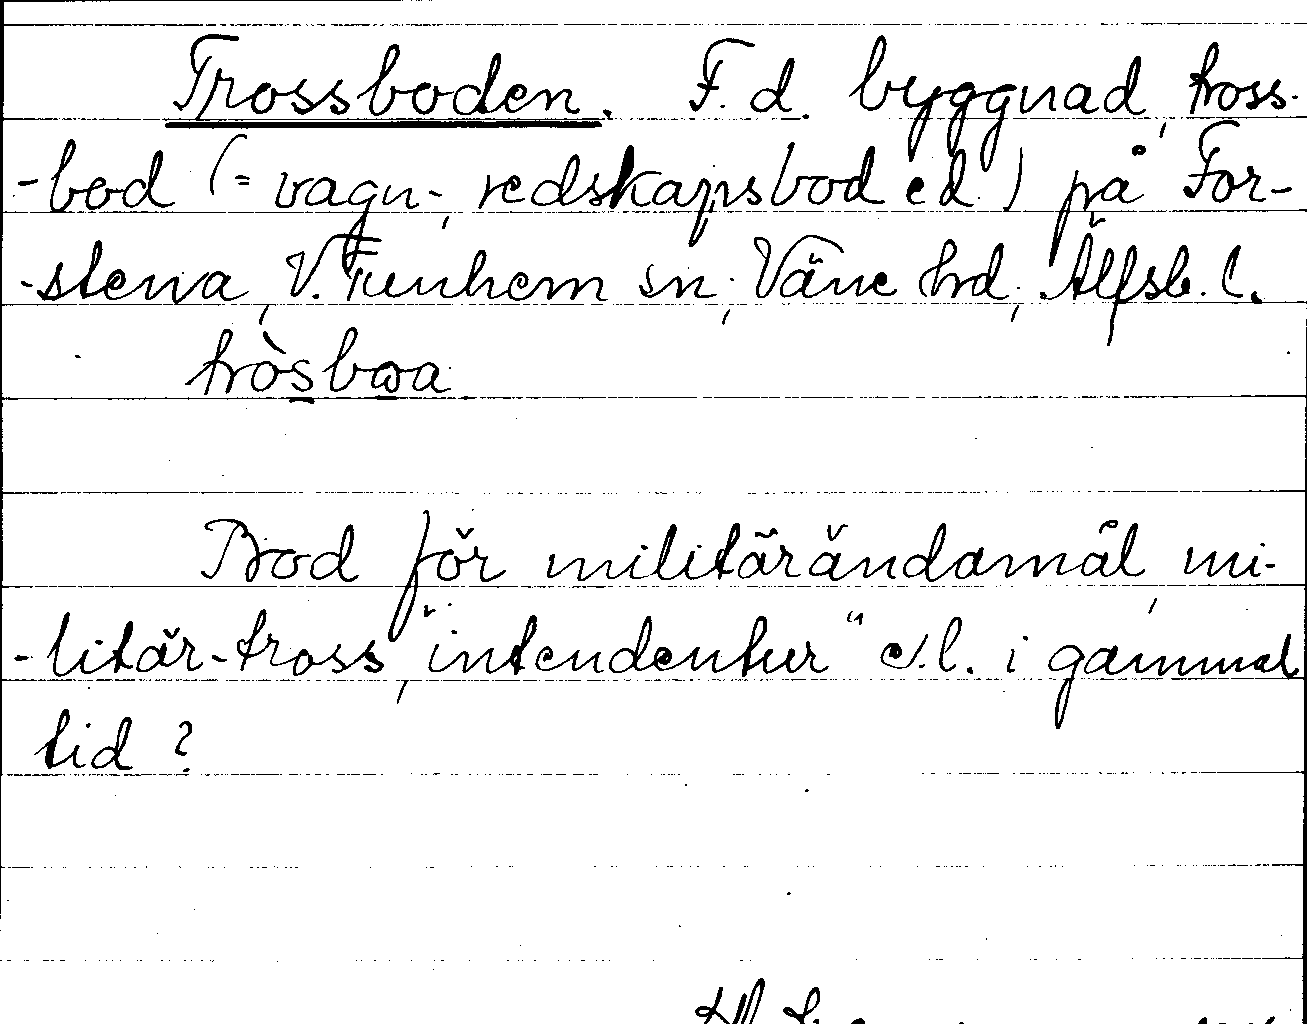 Trossboden. F.d. byggnad, tross-
-bod (= vagn-, redskapsbod ed) på For-
-stena, V. Tunhem sn, Väne hd, Älfsb. l.
tròsbωa
Bod för militärändamål, mi-
-litär-tross, "intendentur" e.l. i gammal
tid ?